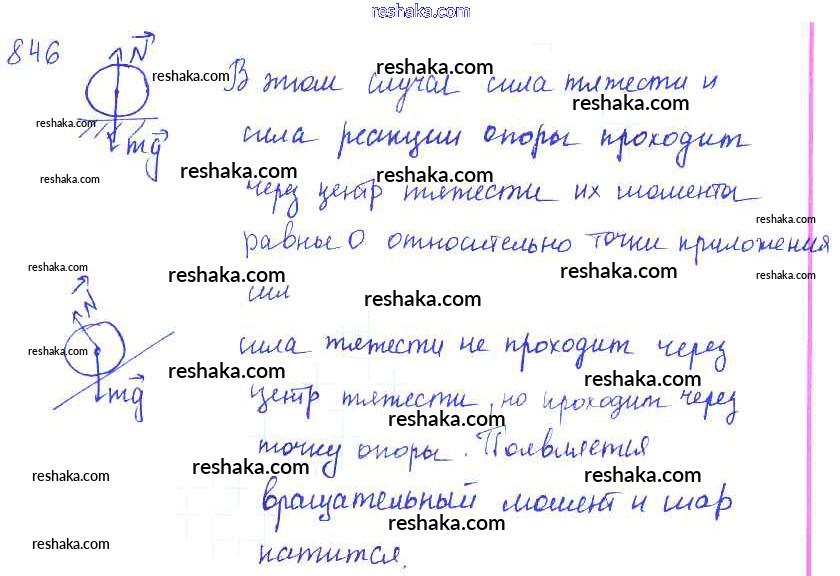 reshaka.com
846 N В этом случае сила тяжести и
сила реакции опоры проходит
mg через центр тяжести их моменты
равные 0 относительно точки приложения
сил
N
сила тяжести не проходит через
mg центр тяжести, но проходит через
точку опоры. Появляется
вращательный момент и шар
катится.
reshaka.com reshaka.com
reshaka.com
reshaka.com
reshaka.com reshaka.com reshaka.com
reshaka.com
reshaka.com reshaka.com reshaka.com reshaka.com
reshaka.com
reshaka.com reshaka.com reshaka.com
reshaka.com
reshaka.com reshaka.com reshaka.com
reshaka.com
reshaka.com reshaka.com